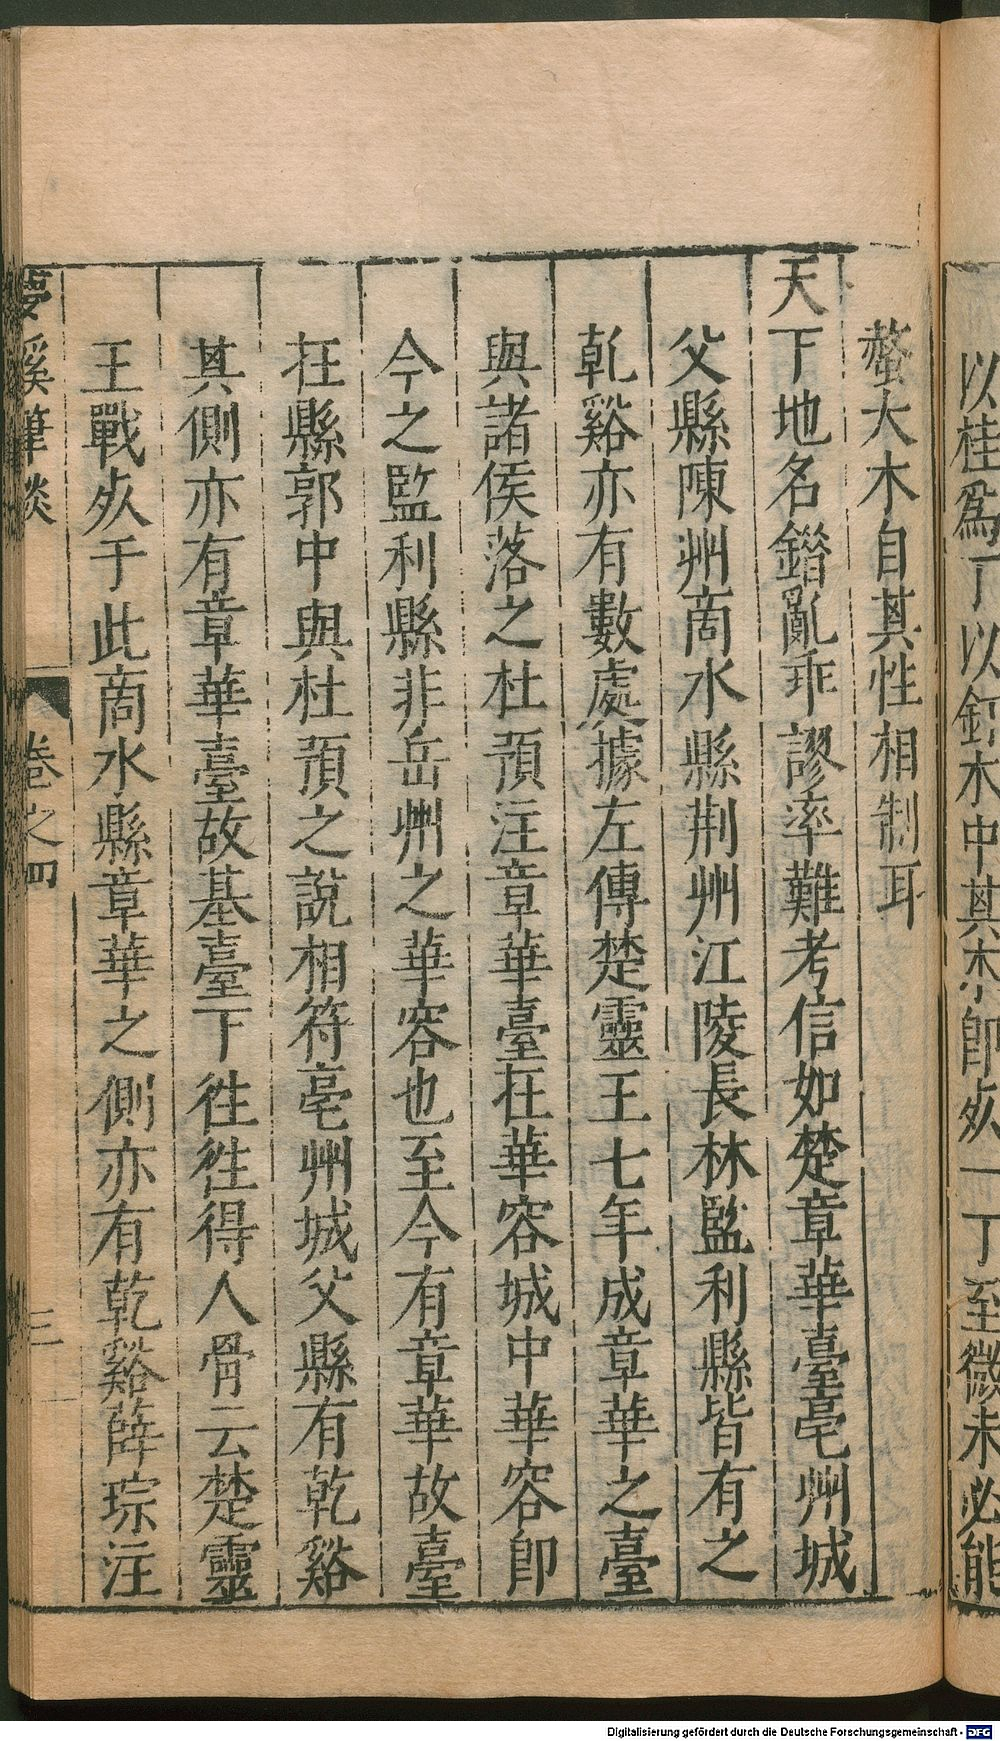 以桂爲丁以釘木中其木卽死一丁至微未必能
螫大木自其性相制耳
天下地名錯亂乖謬率難考信如楚章華臺亳州城
父縣陳州商水縣荆州江陵長林監利縣皆有之
乾谿亦有數處據左傳楚靈王七年成章華之臺
與諸侯落之杜預注章華臺在華容城中華容卽
今之監利縣非岳州之華容也至今有章華故臺
在縣郭中與杜預之說相符亳州城父縣有乾谿
其側亦有章華臺故基臺下徃徃得人骨云楚靈
王戰死于此商水縣章華之側亦有乾谿薛琮注
夢溪筆談 卷之四 三
Digitalisierung gefördert durch die Deutsche Forschungsgemeinschaft - DFG